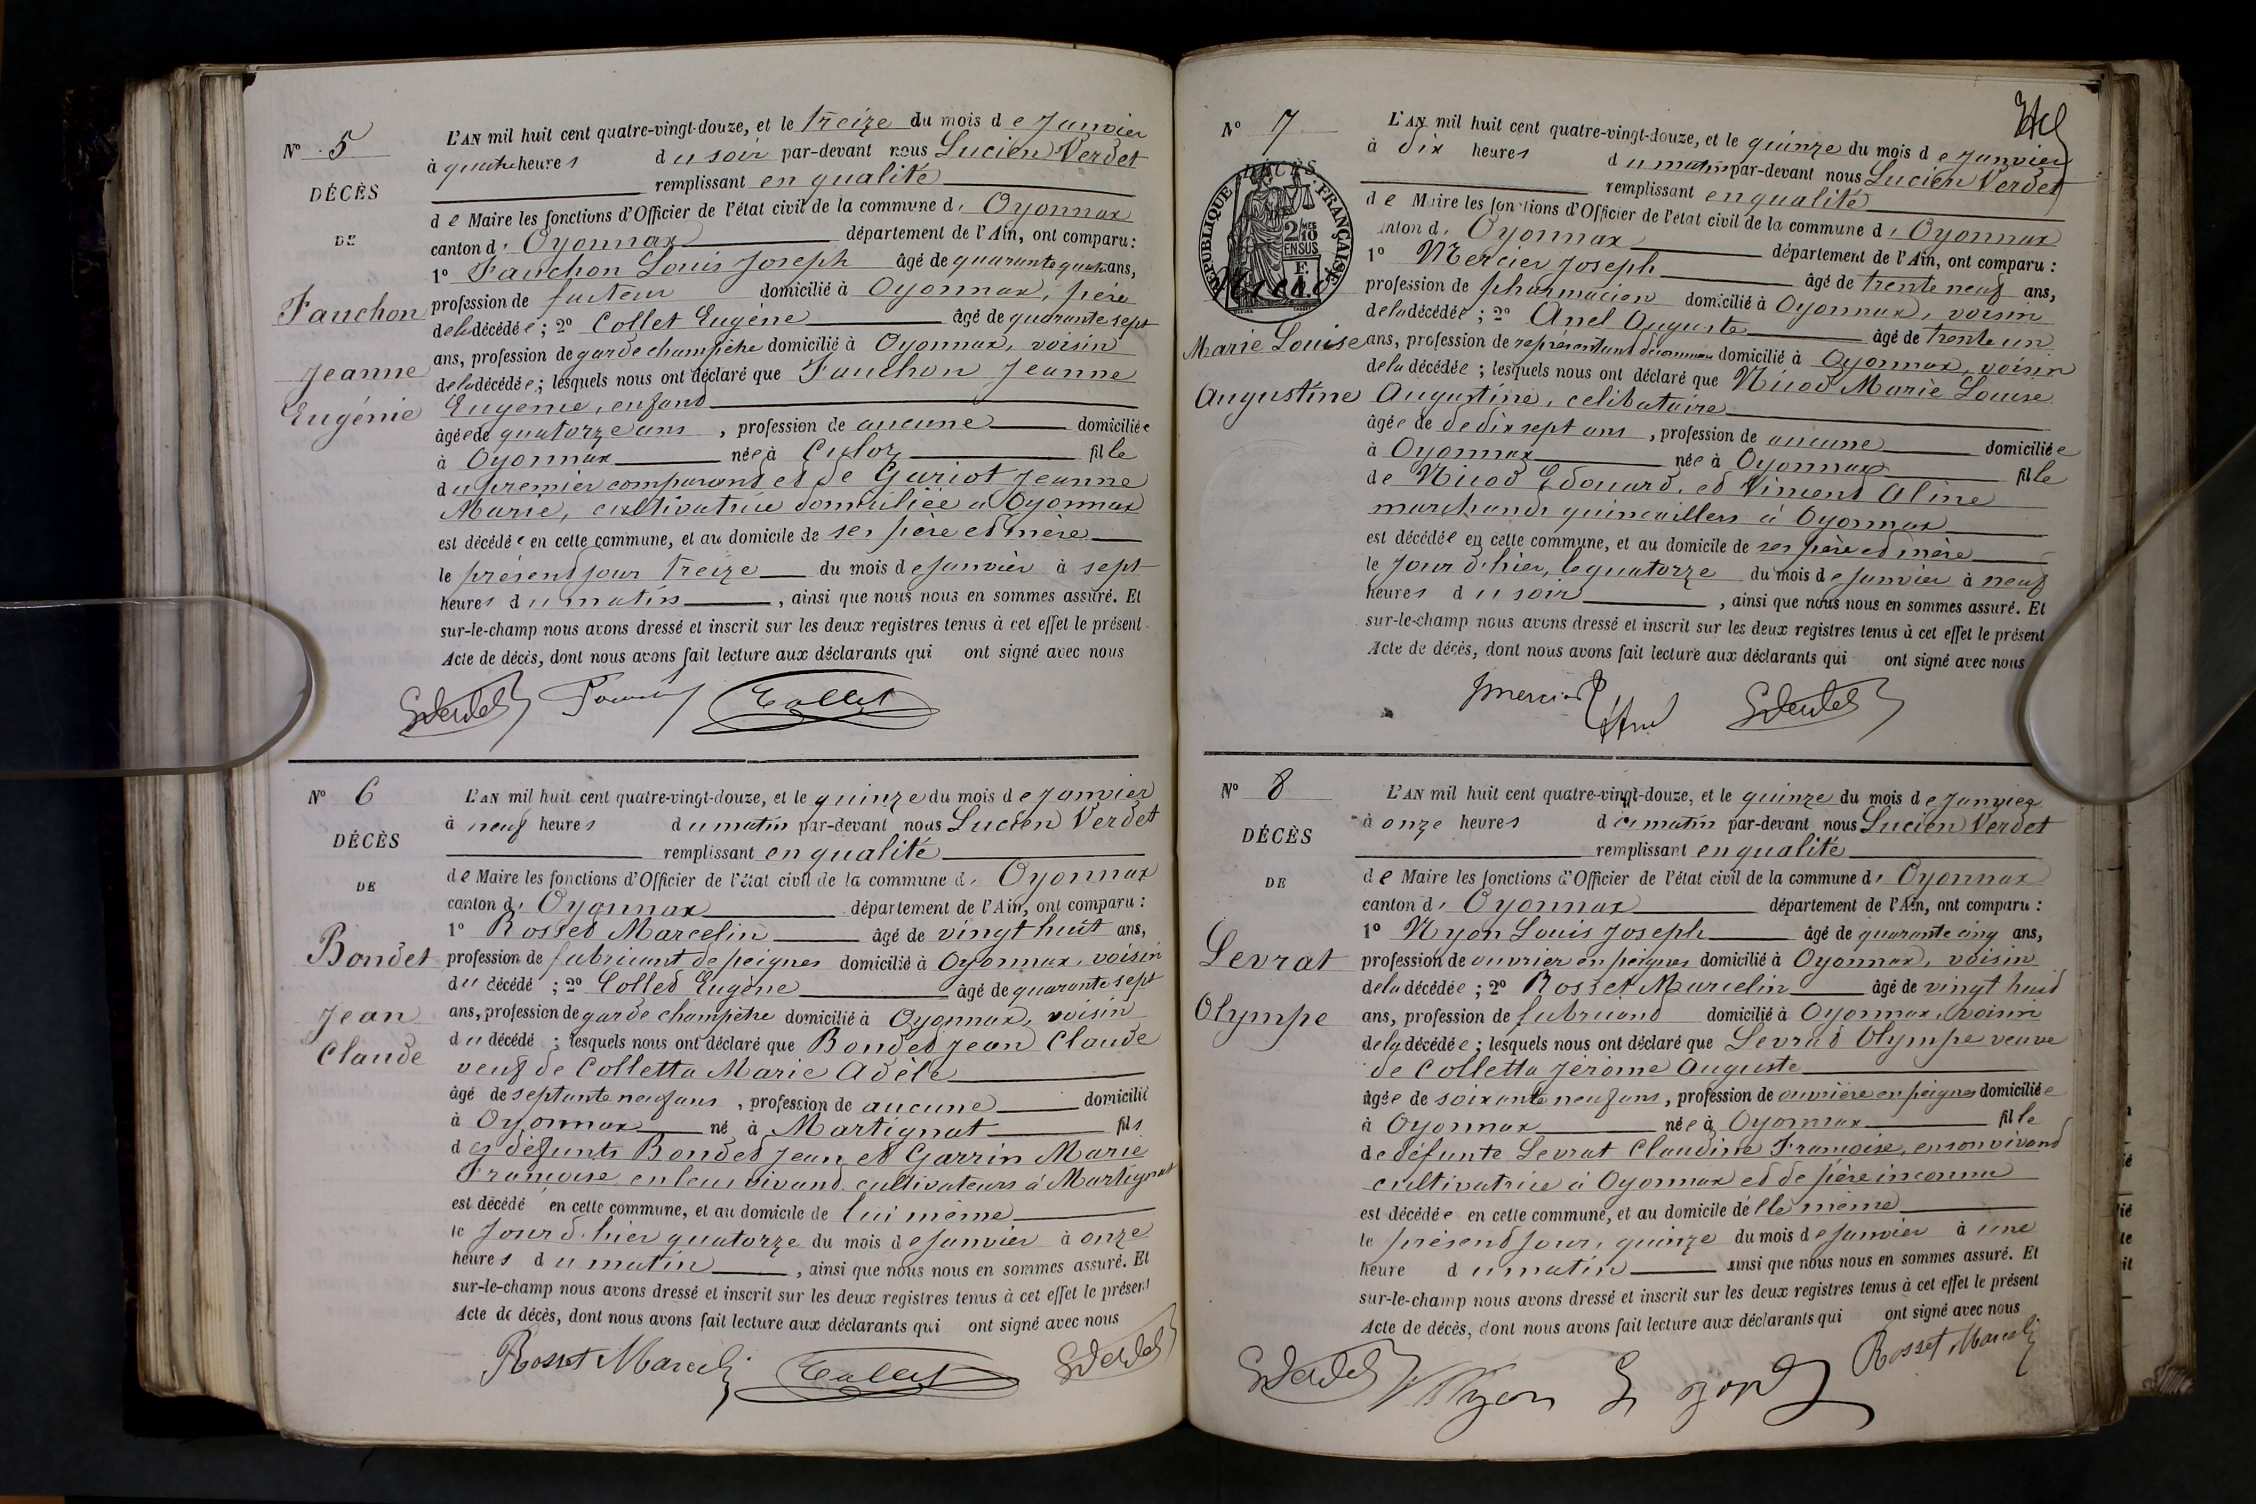 N° 5
DÉCÈS
DE
Fauchon
Jeanne
Eugénie
L'AN mil huit cent quatre-vingt-douze, et le treize du mois de Janvier
à quatre heures du soir par-devant nous Lucien Verdet
remplissant en qualité
de Maire les fonctions d'Officier de l'état civil de la commune d' Oyonnax
canton d' Oyonnax département de l'Ain, ont comparu :
1° Fauchon Louis Joseph âgé de quarante quatre ans,
profession de facteur domicilié à Oyonnax, père
de la décédée ; 2° Collet Eugène âgé de quarante sept
ans, profession de garde champêtre domicilié à Oyonnax, voisin
de la décédée ; lesquels nous ont déclaré que Fauchon Jeanne
Eugénie, enfant
âgée de quatorze ans, profession de aucune domiciliée
à Oyonnax née à Culoz fille
du premier comparant et de Guriot Jeanne
Marie, cultivatrice domiciliée à Oyonnax
est décédée en cette commune, et au domicile de ses père et mère
le présent jour treize du mois de Janvier à sept
heures du matin, ainsi que nous nous en sommes assuré. Et
sur-le-champ nous avons dressé et inscrit sur les deux registres tenus à cet effet le présent
Acte de décès, dont nous avons fait lecture aux déclarants qui ont signé avec nous
Collet
N° 6
DÉCÈS
DE
Bondet
Jean
Claude
L'AN mil huit cent quatre-vingt-douze, et le quinze du mois de Janvier
à neuf heures du matin par-devant nous Lucien Verdet
remplissant en qualité
de Maire les fonctions d'Officier de l'état civil de la commune d' Oyonnax
canton d' Oyonnax département de l'Ain, ont comparu :
1° Rosset Marcelin âgé de vingt huit ans,
profession de fabricant de peignes domicilié à Oyonnax, voisin
du décédé ; 2° Collet Eugène âgé de quarante sept
ans, profession de garde champêtre domicilié à Oyonnax, voisin
du décédé ; lesquels nous ont déclaré que Bondet Jean Claude
veuf de Colletta Marie Adèle
âgé de septante neuf ans, profession de aucune domicilié
à Oyonnax né à Martignat fils
des défunts Bondet Jean et Garrin Marie
Françoise en leur vivant cultivateurs à Martignat
est décédé en cette commune, et au domicile de lui même
le jour d'hier quatorze du mois de Janvier à onze
heures du matin, ainsi que nous nous en sommes assuré. Et
sur-le-champ nous avons dressé et inscrit sur les deux registres tenus à cet effet le présent
Acte de décès, dont nous avons fait lecture aux déclarants qui ont signé avec nous
Rosset Marcelin Collet
N° 7
DÉCÈS
RÉPUBLIQUE FRANÇAISE
2/10 MES
EN SUS
Nicod
Marie Louise
Augustine
L'AN mil huit cent quatre-vingt-douze, et le quinze du mois de Janvier
à dix heures du matin par-devant nous Lucien Verdet
remplissant en qualité
de Maire les fonctions d'Officier de l'état civil de la commune d' Oyonnax
canton d' Oyonnax département de l'Ain, ont comparu :
1° Mercier Joseph âgé de trente neuf ans,
profession de pharmacien domicilié à Oyonnax, voisin
de la décédée ; 2° Anel Auguste âgé de trente un
ans, profession de représentant de commerce domicilié à Oyonnax, voisin
de la décédée ; lesquels nous ont déclaré que Nicod Marie Louise
Augustine, célibataire
âgée de de dix sept ans, profession de aucune domiciliée
à Oyonnax née à Oyonnax fille
de Nicod Edouard, etViment Aline
marchands quincaillers à Oyonnax
est décédée en cette commune, et au domicile de ses père et mère
le jour d'hier, le quatorze du mois de Janvier à neuf
heures du soir, ainsi que nous nous en sommes assuré. Et
sur-le-champ nous avons dressé et inscrit sur les deux registres tenus à cet effet le présent
Acte de décès, dont nous avons fait lecture aux déclarants qui ont signé avec nous
JMercier
N° 8
DÉCÈS
DE
Levrat
Olympe
L'AN mil huit cent quatre-vingt-douze, et le quinze du mois de Janvier
à onze heures du matin par-devant nous Lucien Verdet
remplissant en qualité
de Maire les fonctions d'Officier de l'état civil de la commune d' Oyonnax
canton d' Oyonnax département de l'Ain, ont comparu :
1° Nyon Louis Joseph âgé de quarante cinq ans,
profession de ouvrier en peignes domicilié à Oyonnax, voisin
de la décédée ; 2° Rosset Marcelin âgé de vingt huit
ans, profession de fabricant domicilié à Oyonnax, voisin
de la décédée ; lesquels nous ont déclaré que Levrat Olympe veuve
de Colletta Jérôme Auguste
âgée de soixante neuf ans, profession de ouvrière en peignes domiciliée
à Oyonnax née à Oyonnax fille
de défunte Levrat Claudine Françoise, en son vivant
cultivatrice à Oyonnax et de père inconnu
est décédée en cette commune, et au domicile d'elle même
le présent jour, quinze du mois de Janvier à une
heure du matin ainsi que nous nous en sommes assuré. Et
sur-le-champ nous avons dressé et inscrit sur les deux registres tenus à cet effet le présent
Acte de décès, dont nous avons fait lecture aux déclarants qui ont signé avec nous
Nyon Rosset Marcelin